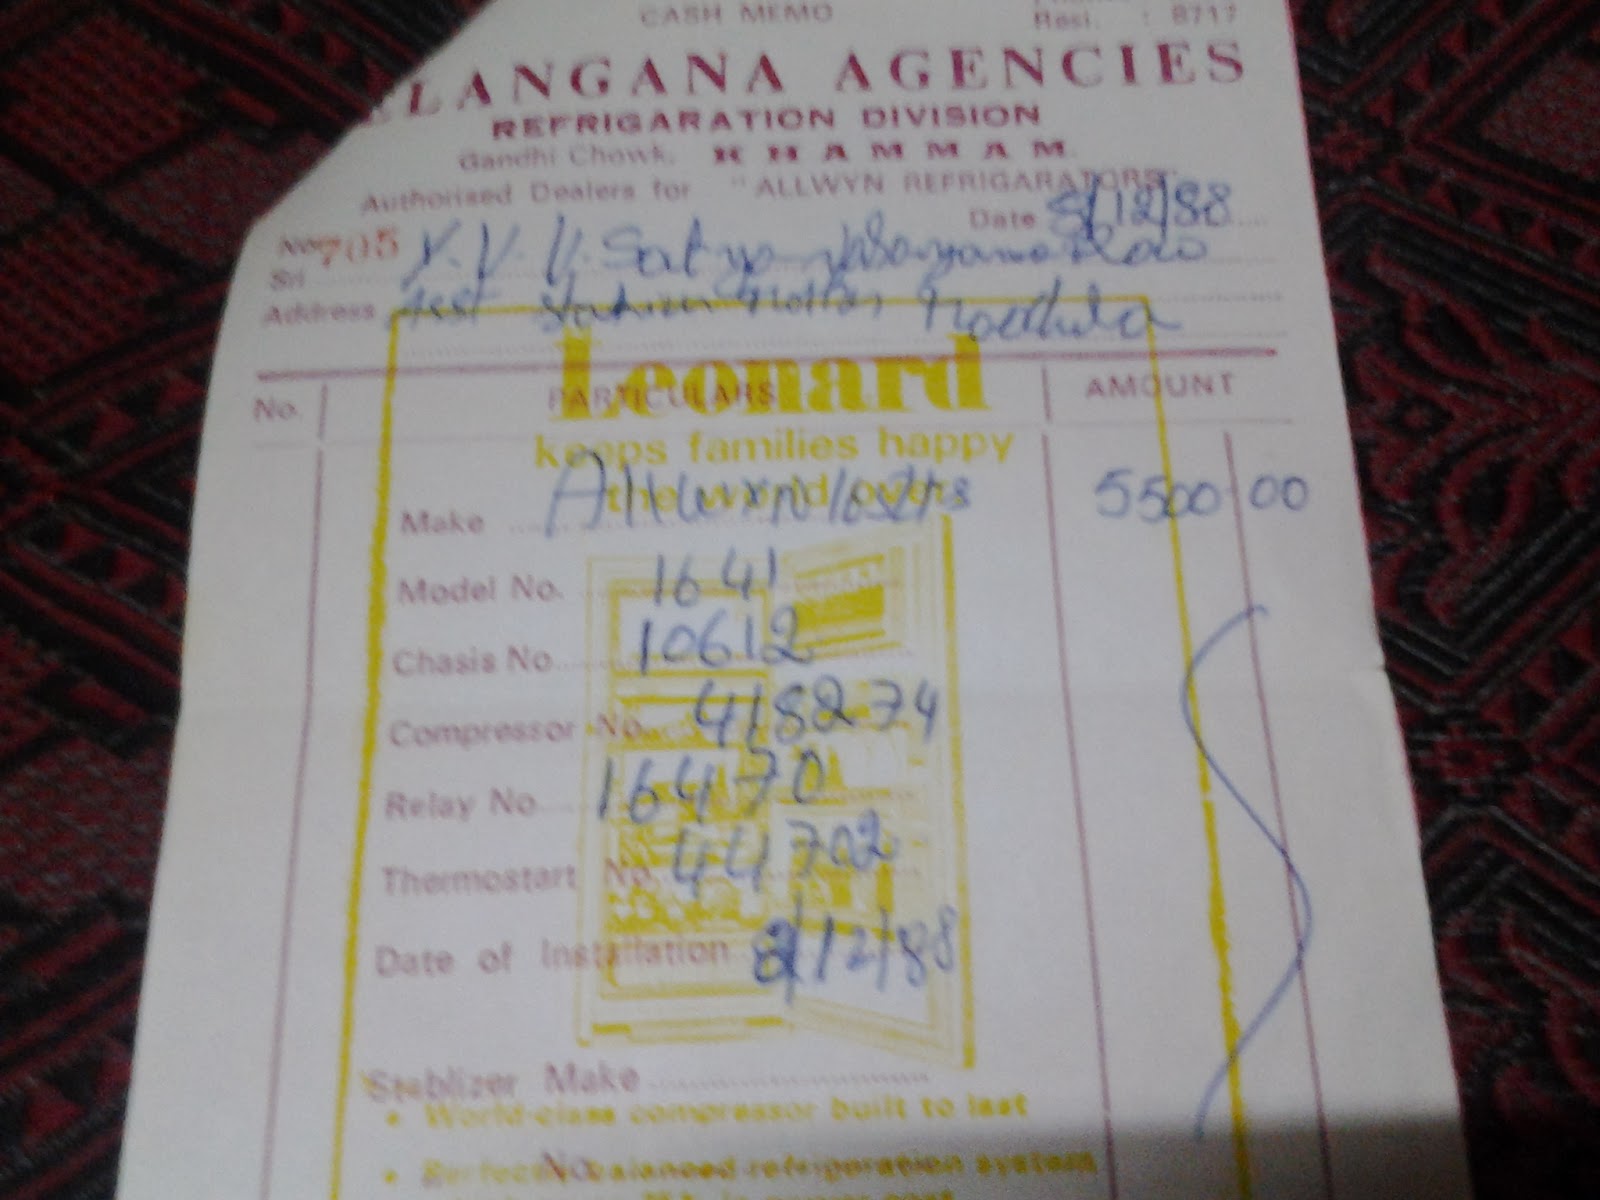 CASH MEMO
Resi. : 8717
ELANGANA AGENCIES
REFRIGARATION DIVISION
Gandhi Chowk, KHAMMAM.
Authorised Dealers for "ALLWYN REFRIGARATORS"
Date 8/12/88
No 705
Sri Y. V. V. Satyanarayana Rao
Address Asst Station Master
Leonard
No. PARTICULARS AMOUNT
keeps families happy
the world over
Make Allwyn 165 ltrs 5500 00
Model No. 1641
Chasis No 10612
Compressor No. 418274
Relay No 16470
Thermostart No. 44702
Date of Installation 8/12/88
Stablizer Make
• World-class compressor built to last
No.
• Perfectly balanced refrigeration system,